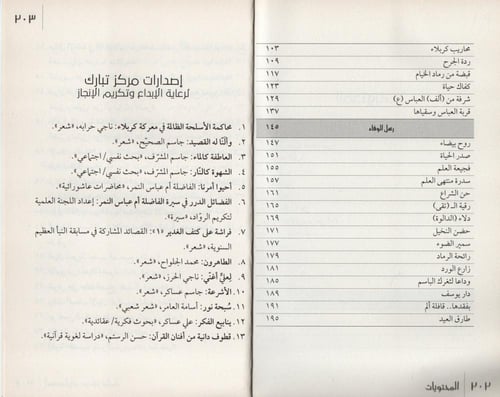 محاريب كربلاء ١٠٣
ردة الجرح ١٠٩
قبضة من رماد الخيام ١١٧
كفاك حياة ١٢٣
شرفة من (ألف) العباس (ع) ١٢٩
قربة العباس وسقياها ١٣٧
رسل الوفاء ١٤٥
روح بيضاء ١٤٧
صدر الحياة ١٥١
فجيعة العلم ١٥٥
سدرة منتهى العلم ١٥٧
حن الشراع ١٦١
رقية الـ (تقى) ١٦٥
دلاء (الدالوة) ١٦٩
حضن النخيل ١٧١
سمير الضوء ١٧٧
رائحة الرماد ١٧٩
زارع الورد ١٨١
وداعا لثغرك الباسم ١٨٥
دار يوسف ١٨٩
بفقدها.. قافلة ألم ١٩١
طارق العيد ١٩٥
٢٠٢ المحتويات
٢٠٣
إصدارات مركز تبارك
لرعاية الإبداع وتكريم الإنجاز
١. محاكمة الأسلحة الظالمة في معركة كربلاء: ناجي حرابه، «شعر».
٢. وألنّا له القصيد: جاسم الصحيّح، «شعر».
٣. العاطفة كالماء: جاسم المشرّف، «بحث نفسي/ اجتماعي».
٤. الشهوة كالنّار: جاسم المشرّف، «بحث نفسي/ اجتماعي».
٥. أحيوا أمرنا: الفاضلة أم عباس النمر، «محاضرات عاشورائية».
٦. الفضائل الدرر في سيرة الفاضلة أم عباس النمر: إعداد اللجنة العلمية
لتكريم الرواد، «سيرة».
٧. فراشة على كتف الغدير «١»: القصائد المشاركة في مسابقة النبأ العظيم
السنوية، «شعر».
٨. الطاهرون: محمد الجلواح، «شعر».
٩. لعليّ أغنّي: ناجي الحرز، «شعر».
١٠. الأشرعة: جاسم عساكر، «شعر».
١١. سُبحة نور: أسامة العامر، «شعر شعبي».
١٢. ينابيع الفكر: علي عساكر، «بحوث فكرية/ عقائدية».
١٣. قطوف دانية من أفنان القرآن: حسن الرستم، «دراسة لغوية قرآنية».